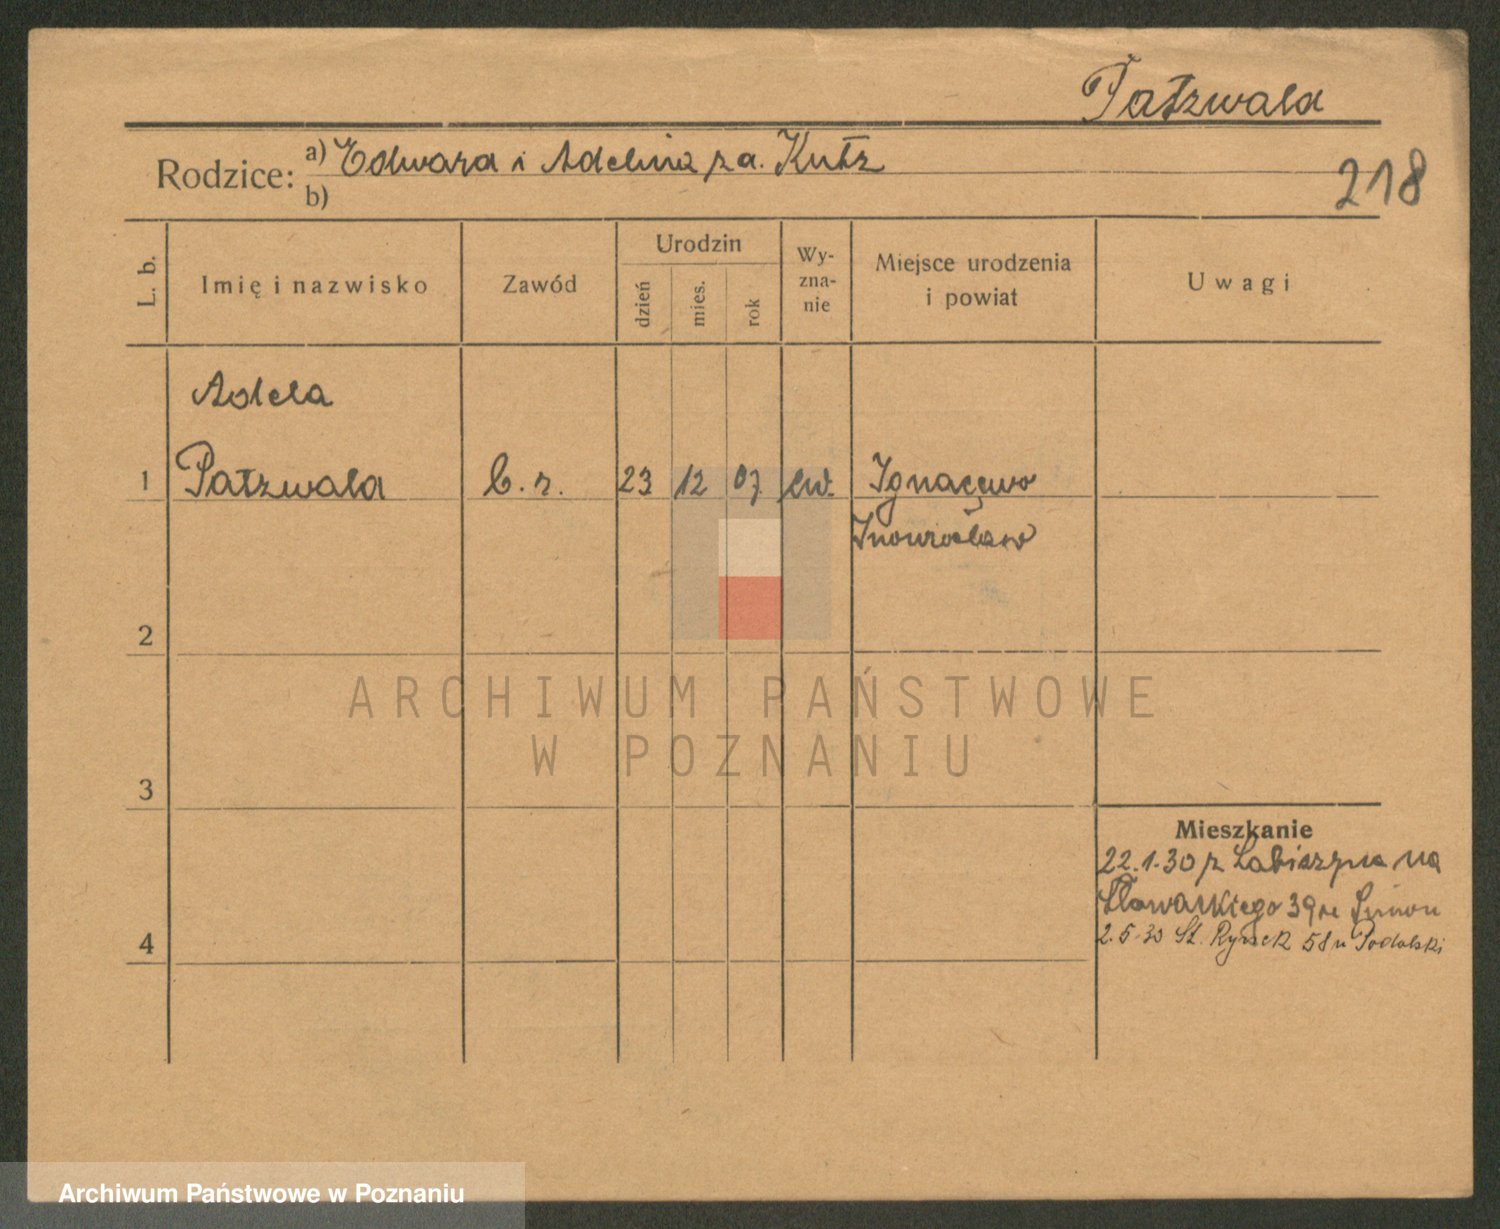 Patzwald
Rodzice: a) Edward i Adelina z d. Kutz
b)
218
L. b.
Imię i nazwisko
Zawód
Urodzin
dzień
mies.
rok
Wy-
zna-
nie
Miejsce urodzenia
i powiat
Uwagi
Adela
1 Patzwald b. z. 23 12 07 ew. Ignacewo
Inowrocław
2
ARCHIWUM PAŃSTWOWE
W POZNANIU
3
Mieszkanie
22.1.30 z Łabiszyna na
Słowackiego 39 u Simon
4
2.5.30 St. Rynek 58 u Podolski
Archiwum Państwowe w Poznaniu